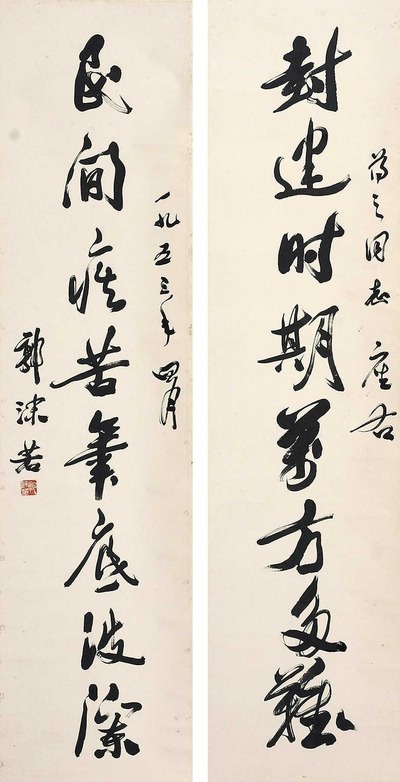 封建时期萬方多難
之同志座右
民間疾苦筆底波瀾
一九五三年四月
郭沫若